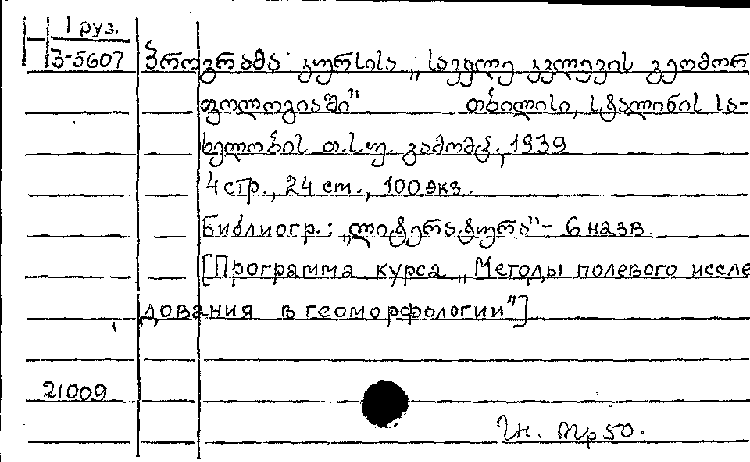 1 груз.
პ-5607 პროგრამა კურსისა „საველე კვლევის გეომორ
ფოლოგიაში" თბილისი, სტალინის სა-
ხელობის თ.ს.უ. გამომც., 1939
4 стр., 24 cm., 100 экз.
Библиогр.: „ლიტერატურა" - 6 назв.
[Программа курса „Методы полевого иссле
дования в геоморфологии"]
21009
Пр 50.